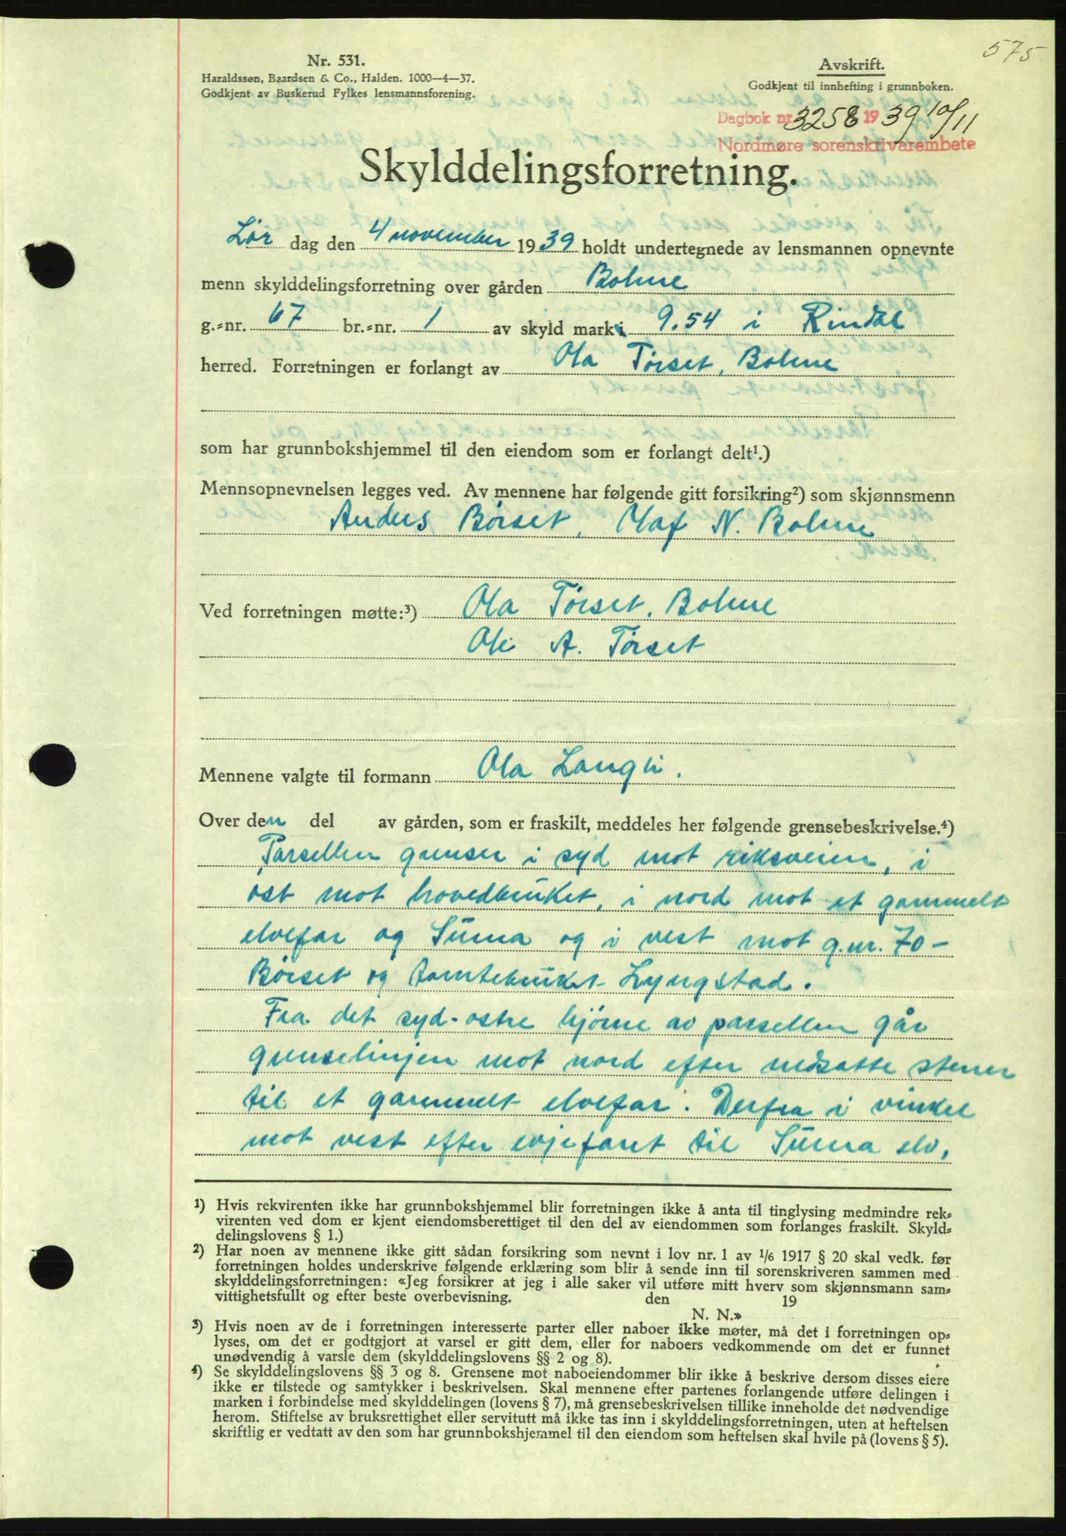 575
Nr. 531.
Haraldssøn, Baardsen & Co., Halden. 1000—4—37.
Godkjent av Buskerud Fylkes lensmannsforening.
Avskrift.
Godkjent til innhefting i grunnboken.
Dagbok nr. 3258 19 39 10/11
Nordmøre sorenskrivarembete
Skylddelingsforretning.
Lør dag den 4 november 19 39 holdt undertegnede av lensmannen opnevnte
menn skylddelingsforretning over gården Bolme
g.-nr. 67 br.-nr. 1 av skyld mark 9.54 i Rindal
herred. Forretningen er forlangt av Ola Tørset, Bolme
som har grunnbokshjemmel til den eiendom som er forlangt delt¹.)
Mennsopnevnelsen legges ved. Av mennene har følgende gitt forsikring²) som skjønnsmenn
Anders Børset, Olaf N. Bolme
Ved forretningen møtte:³) Ola Tørset, Bolme
Ole A. Tørset
Mennene valgte til formann Ola Langli.
Over den del av gården, som er fraskilt, meddeles her følgende grensebeskrivelse.⁴)
Parsellen grenser i syd mot riksveien, i
øst mot hovedbruket, i nord mot et gammelt
elvefar og Surna og i vest mot g.nr. 70 -
Børset og tomtebruket Lyngstad.
Fra det syd-østre hjørne av parsellen går
grenselinjen mot nord efter nedsatte stener
til et gammelt elvefar. Derfra i vinkel
mot vest efter evjefaret til Surna elv,
¹) Hvis rekvirenten ikke har grunnbokshjemmel blir forretningen ikke å anta til tinglysing medmindre rek-
virenten ved dom er kjent eiendomsberettiget til den del av eiendommen som forlanges fraskilt. Skyld-
delingslovens § 1.)
²) Har noen av mennene ikke gitt sådan forsikring som nevnt i lov nr. 1 av 1/6 1917 § 20 skal vedk. før
forretningen holdes underskrive følgende erklæring som blir å sende inn til sorenskriveren sammen med
skylddelingsforretningen: «Jeg forsikrer at jeg i alle saker vil utføre mitt hverv som skjønnsmann sam-
vittighetsfullt og efter beste overbevisning. den 19
N. N.»
³) Hvis noen av de i forretningen interesserte parter eller naboer ikke møter, må det i forretningen op-
lyses, om det er godtgjort at varsel er gitt dem, eller for naboers vedkommende om det er funnet
unødvendig å varsle dem (skylddelingslovens §§ 2 og 8).
⁴) Se skylddelingslovens §§ 3 og 8. Grensene mot naboeiendommer blir ikke å beskrive dersom disses eiere
ikke er tilstede og samtykker i beskrivelsen. Skal mennene efter partenes forlangende utføre delingen i
marken i forbindelse med skylddelingen (lovens § 7), må grensebeskrivelsen tillike inneholde det nødvendige
herom. Stiftelse av bruksrettighet eller servitutt må ikke tas inn i skylddelingsforretningen, uten at heftelsen
skriftlig er vedtatt av den som har grunnbokshjemmel til den eiendom som heftelsen skal hvile på (lovens § 5).